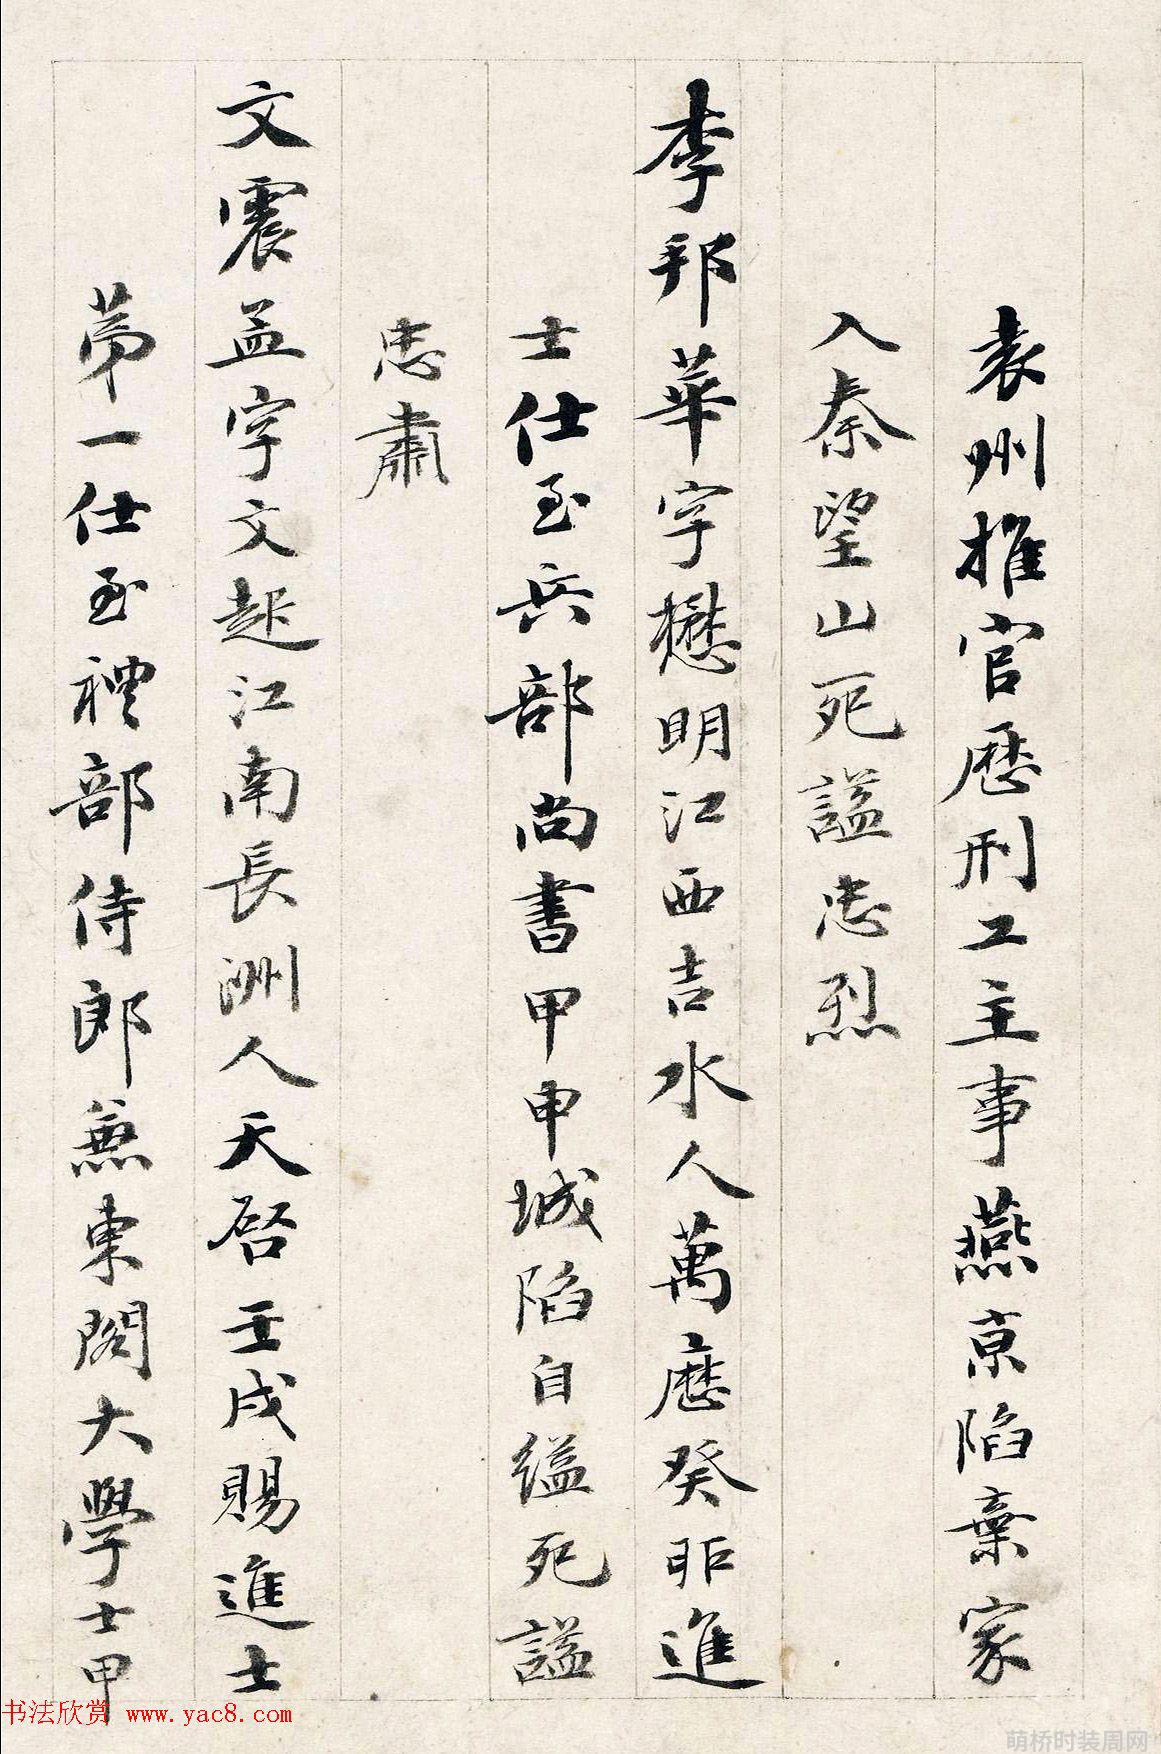 袁州推官歷刑工主事燕京陷棄家
入秦望山死謚忠烈
李邦華字懋明江西吉水人萬曆癸卯進
士仕至兵部尚書甲申城陷自縊死謚
忠肅
文震孟字文起江南長洲人天啓壬戌賜進士
第一仕至禮部侍郎兼東閣大學士甲
书法欣赏 www.yac8.com
萌桥时装周网